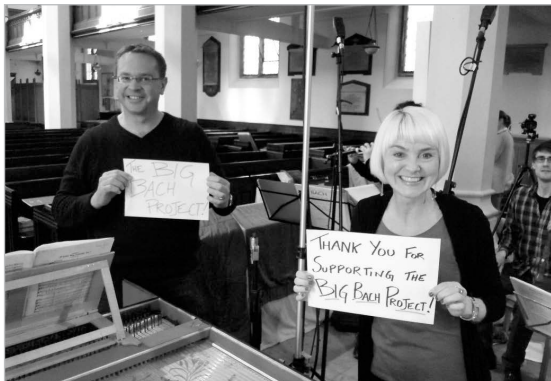 THE BIG
BACH
PROJECT!
THANK YOU FOR
SUPPORTING THE
BIG BACH PROJECT!